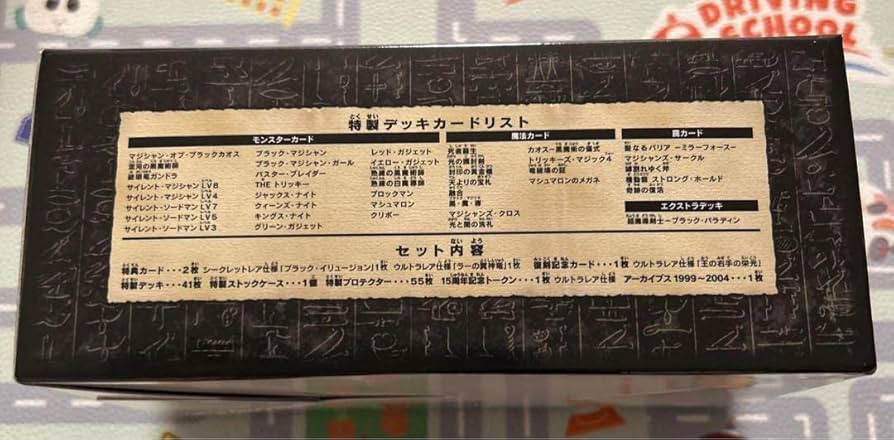 DRIVING
SCHOOL
とくせい
特製デッキカードリスト
モンスターカード
マジシャン・オブ・ブラックカオス
混沌の黒魔術師
破壊竜ガンドラ
サイレント・マジシャン LV8
サイレント・マジシャン LV4
サイレント・ソードマン LV7
サイレント・ソードマン LV5
サイレント・ソードマン LV3
ブラック・マジシャン
ブラック・マジシャン・ガール
バスター・ブレイダー
THE トリッキー
ジャックス・ナイト
クィーンズ・ナイト
キングス・ナイト
グリーン・ガジェット
レッド・ガジェット
イエロー・ガジェット
熟練の黒魔術師
熟練の白魔導師
ブロックマン
マシュマロン
クリボー
魔法カード
死者蘇生
光の護封剣
封印の黄金櫃
天よりの宝札
融合
魔・魔・掌
マジシャンズ・クロス
光と闇の洗礼
カオス－黒魔術の儀式
トリッキーズ・マジック4
竜破壊の証
マシュマロンのメガネ
罠カード
聖なるバリア －ミラーフォース－
マジシャンズ・サークル
機動砦 ストロング・ホールド
エクストラデッキ
超魔導剣士－ブラック・パラディン
セット内容
特典カード・・・2枚 シークレットレア仕様「ブラック・イリュージョン」1枚 ウルトラレア仕様「ラーの翼神竜」1枚 復刻記念カード・・・1枚 ウルトラレア仕様「王の右手の栄光」
特製デッキ・・・41枚 特製ストックケース・・・1個 特製プロテクター・・・55枚 15周年記念トークン・・・1枚 ウルトラレア仕様 アーカイブス1999～2004・・・1枚